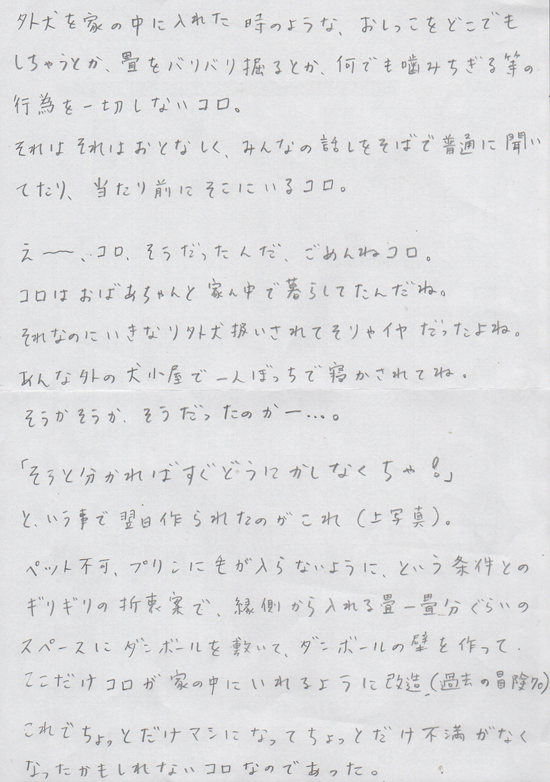 外犬を家の中に入れた時のような、おしっこをどこでも
しちゃうとか、畳をバリバリ掘るとか、何でも噛みちぎる等の
行為を一切しないコロ。
それはそれはおとなしく、みんなの話しをそばで普通に聞い
てたり、当たり前にそこにいるコロ。
え〜〜、コロ、そうだったんだ、ごめんねコロ。
コロはおばあちゃんと家ん中で暮らしてたんだね。
それなのにいきなり外犬扱いされてそりゃイヤだったよね。
あんな外の犬小屋で一人ぼっちで寝かされてね。
そうかそうか、そうだったのかー…。
「そうと分かればすぐどうにかしなくちゃ!」
と、いう事で翌日作られたのがこれ(上写真)。
ペット不可、プリンに毛が入らないように、という条件との
ギリギリの折衷案で、縁側から入れる畳一畳分ぐらいの
スペースにダンボールを敷いて、ダンボールの壁を作って、
ここだけコロが家の中にいれるように改造(過去の冒険70)
これでちょっとだけマシになってちょっとだけ不満がなく
なったかもしれないコロなのであった。